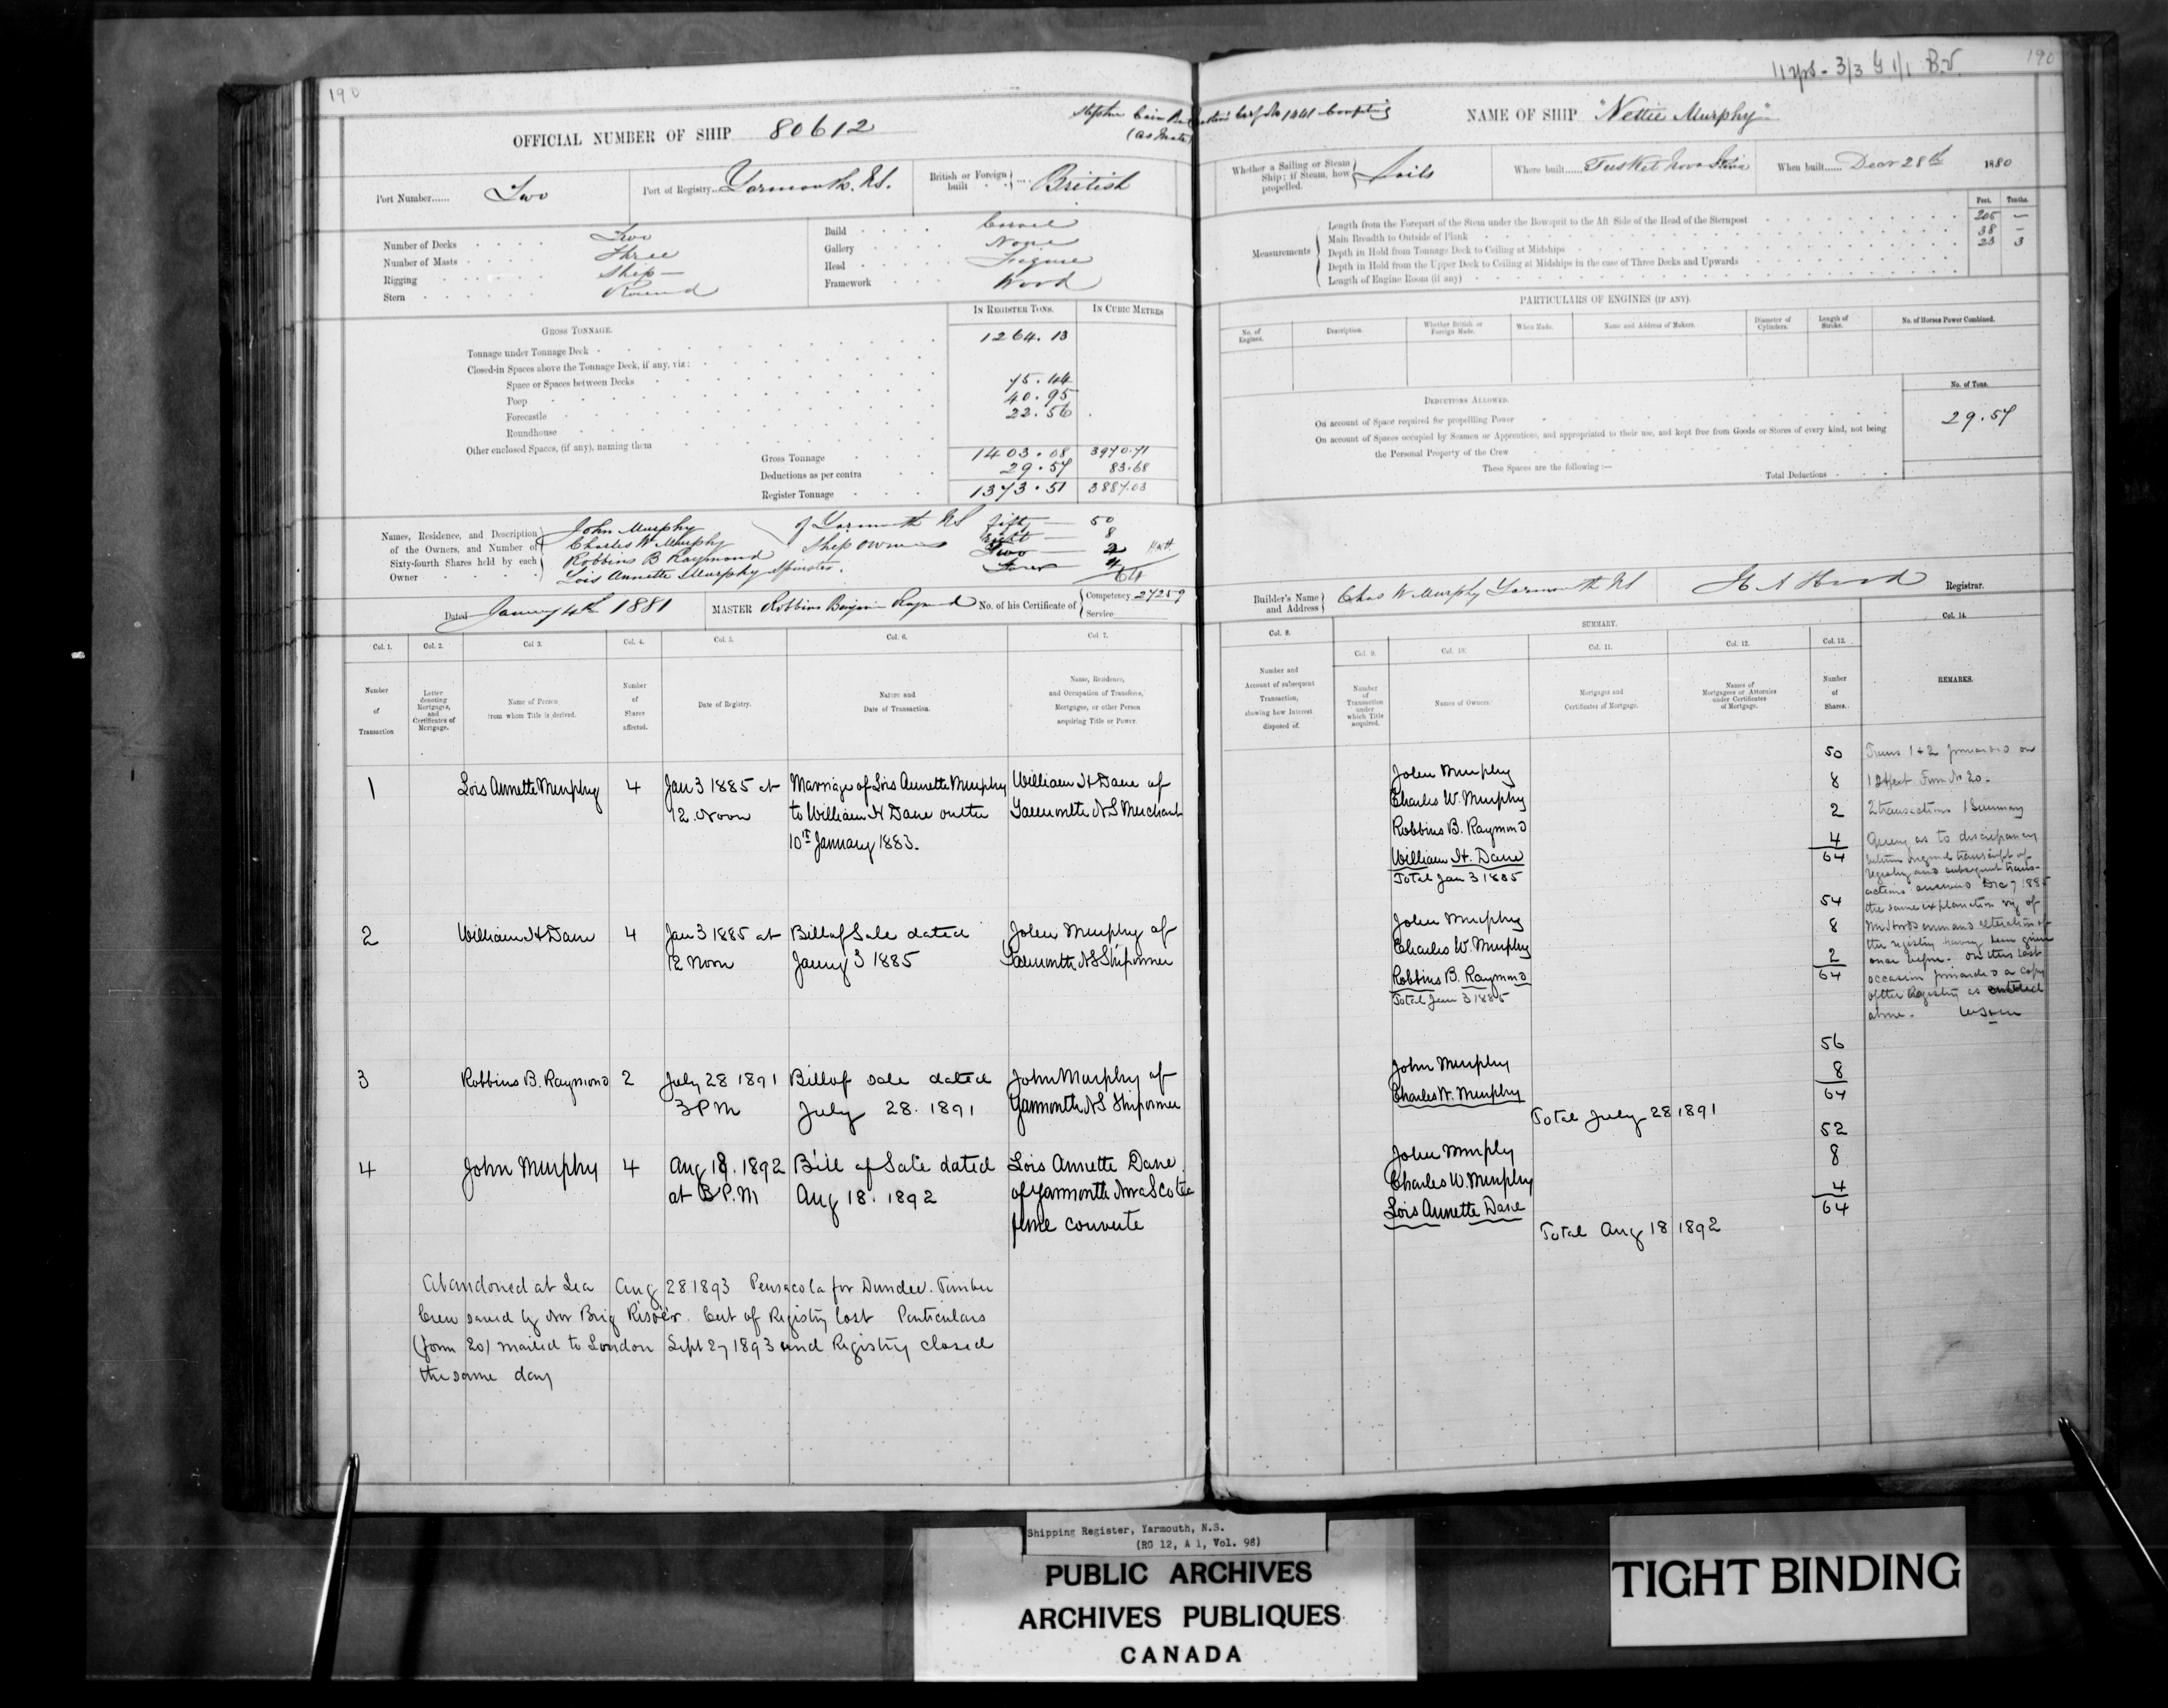 190
OFFICIAL NUMBER OF SHIP 80612
Port Number...... Two
Port of Registry... Yarmouth. N.S.
British or Foreign built .... British
Number of Decks Two
Number of Masts Three
Rigging Ship
Stern Round
Build Carvel
Gallery None
Head Figure
Framework Wood
IN REGISTER TONS. IN CUBIC METRES
GROSS TONNAGE.
Tonnage under Tonnage Deck 1264.13
Closed-in Spaces above the Tonnage Deck, if any, viz:
Space or Spaces between Decks
Poop 75.44
Forecastle 40.95
Roundhouse 22.56
Other enclosed Spaces, (if any), naming them
Gross Tonnage 1403.08 3970.71
Deductions as per contra 29.57 83.68
Register Tonnage 1373.51 3887.03
Names, Residence, and Description of the Owners, and Number of Sixty-fourth Shares held by each Owner
John Murphy of Yarmouth NS Fifty 50
Charles W Murphy Ship owners Eight 8
Robbins B Raymond Two 2
Lois Annette Murphy Spinster. Four 4
64
Dated January 4th 1881 MASTER Robbins Benjamin Raymond No. of his Certificate of Competency 27259
Service
Col. 1. Col. 2. Col 3. Col. 4. Col. 5. Col. 6. Col 7.
Number of Transaction
Letter denoting Mortgages, and Certificates of Mortgage.
Name of Person from whom Title is derived.
Number of Shares affected.
Date of Registry.
Nature and Date of Transaction.
Name, Residence, and Occupation of Transferee, Mortgagee, or other Person acquiring Title or Power.
1 Lois Annette Murphy 4 Jan 3 1885 at Marriage of Lois Annette Murphy William H Dane of
12 Noon to William H Dane on the Yarmouth NS Merchant
10th January 1883.
2 William H Dane 4 Jan 3 1885 at Bill of Sale dated John Murphy of
12 Noon January 3 1885 Yarmouth NS Shipowner
3 Robbins B. Raymond 2 July 28 1891 Bill of sale dated John Murphy of
3 PM July 28. 1891 Yarmouth NS Shipowner
4 John Murphy 4 Aug 18. 1892 Bill of Sale dated Lois Annette Dane
at 3 P.M Aug 18. 1892 of Yarmouth Nova Scotia
feme couverte
Abandoned at Sea Aug 28 1893 Pensacola for Dundee. Timber
Crew saved by Nor Brig Risoer. Cert of Registry lost Particulars
(form 20) mailed to London Sept 27 1893 and Registry closed
the same day
190
NAME OF SHIP "Nettie Murphy"
Whether a Sailing or Steam Ship; if Steam, how propelled. Sails
Where built...... Tusket Nova Scotia
When built...... Decr 28th 1880
Feet. Tenths.
Measurements
Length from the Forepart of the Stem under the Bowsprit to the Aft Side of the Head of the Sternpost 205 -
Main Breadth to Outside of Plank 38 -
Depth in Hold from Tonnage Deck to Ceiling at Midships 23 3
Depth in Hold from the Upper Deck to Ceiling at Midships in the case of Three Decks and Upwards
Length of Engine Room (if any)
PARTICULARS OF ENGINES (IF ANY).
No. of Engines.
Description.
Whether British or Foreign Made.
When Made.
Name and Address of Makers.
Diameter of Cylinders.
Length of Stroke.
No. of Horses Power Combined.
DEDUCTIONS ALLOWED.
No. of Tons.
On account of Space required for propelling Power
On account of Spaces occupied by Seamen or Apprentices, and appropriated to their use, and kept free from Goods or Stores of every kind, not being the Personal Property of the Crew 29.57
These Spaces are the following:—
Total Deductions
Builder's Name and Address Chas W Murphy Yarmouth NS
Registrar.
SUMMARY.
Col. 8. Col. 9. Col. 10. Col. 11. Col. 12. Col. 13. Col. 14.
Number and Account of subsequent Transaction, showing how Interest disposed of.
Number of Transaction under which Title acquired.
Names of Owners.
Mortgages and Certificates of Mortgage.
Names of Mortgagees or Attornies under Certificates of Mortgage.
Number of Shares.
REMARKS.
John Murphy 50
Charles W. Murphy 8
Robbins B. Raymond 2
William H. Dane 4
Total Jan 3 1885 64
John Murphy 54
Charles W. Murphy 8
Robbins B. Raymond 2
Total Jan 3 1885 64
John Murphy 56
Charles W. Murphy 8
Total July 28 1891 64
John Murphy 52
Charles W. Murphy 8
Lois Annette Dane 4
Total Aug 18 1892 64
Trans 1 + 2 forwarded on
Form No 20.
2 transactions 1 Summary
Query as to discrepancy
between original transcript of
registry and subsequent trans-
actions answered Dec 7 1885
the same explanation viz of
the registry having been given
once before. On this last
occasion forwarded a copy
of the Registry as
above.
Shipping Register, Yarmouth, N.S.
(RG 12, A 1, Vol. 98)
PUBLIC ARCHIVES
ARCHIVES PUBLIQUES
CANADA
TIGHT BINDING